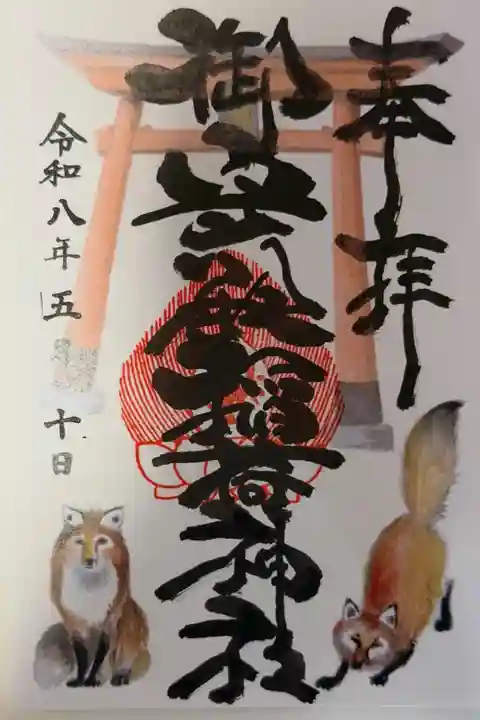 奉拝
御 稲荷神社
令和八年五 十日